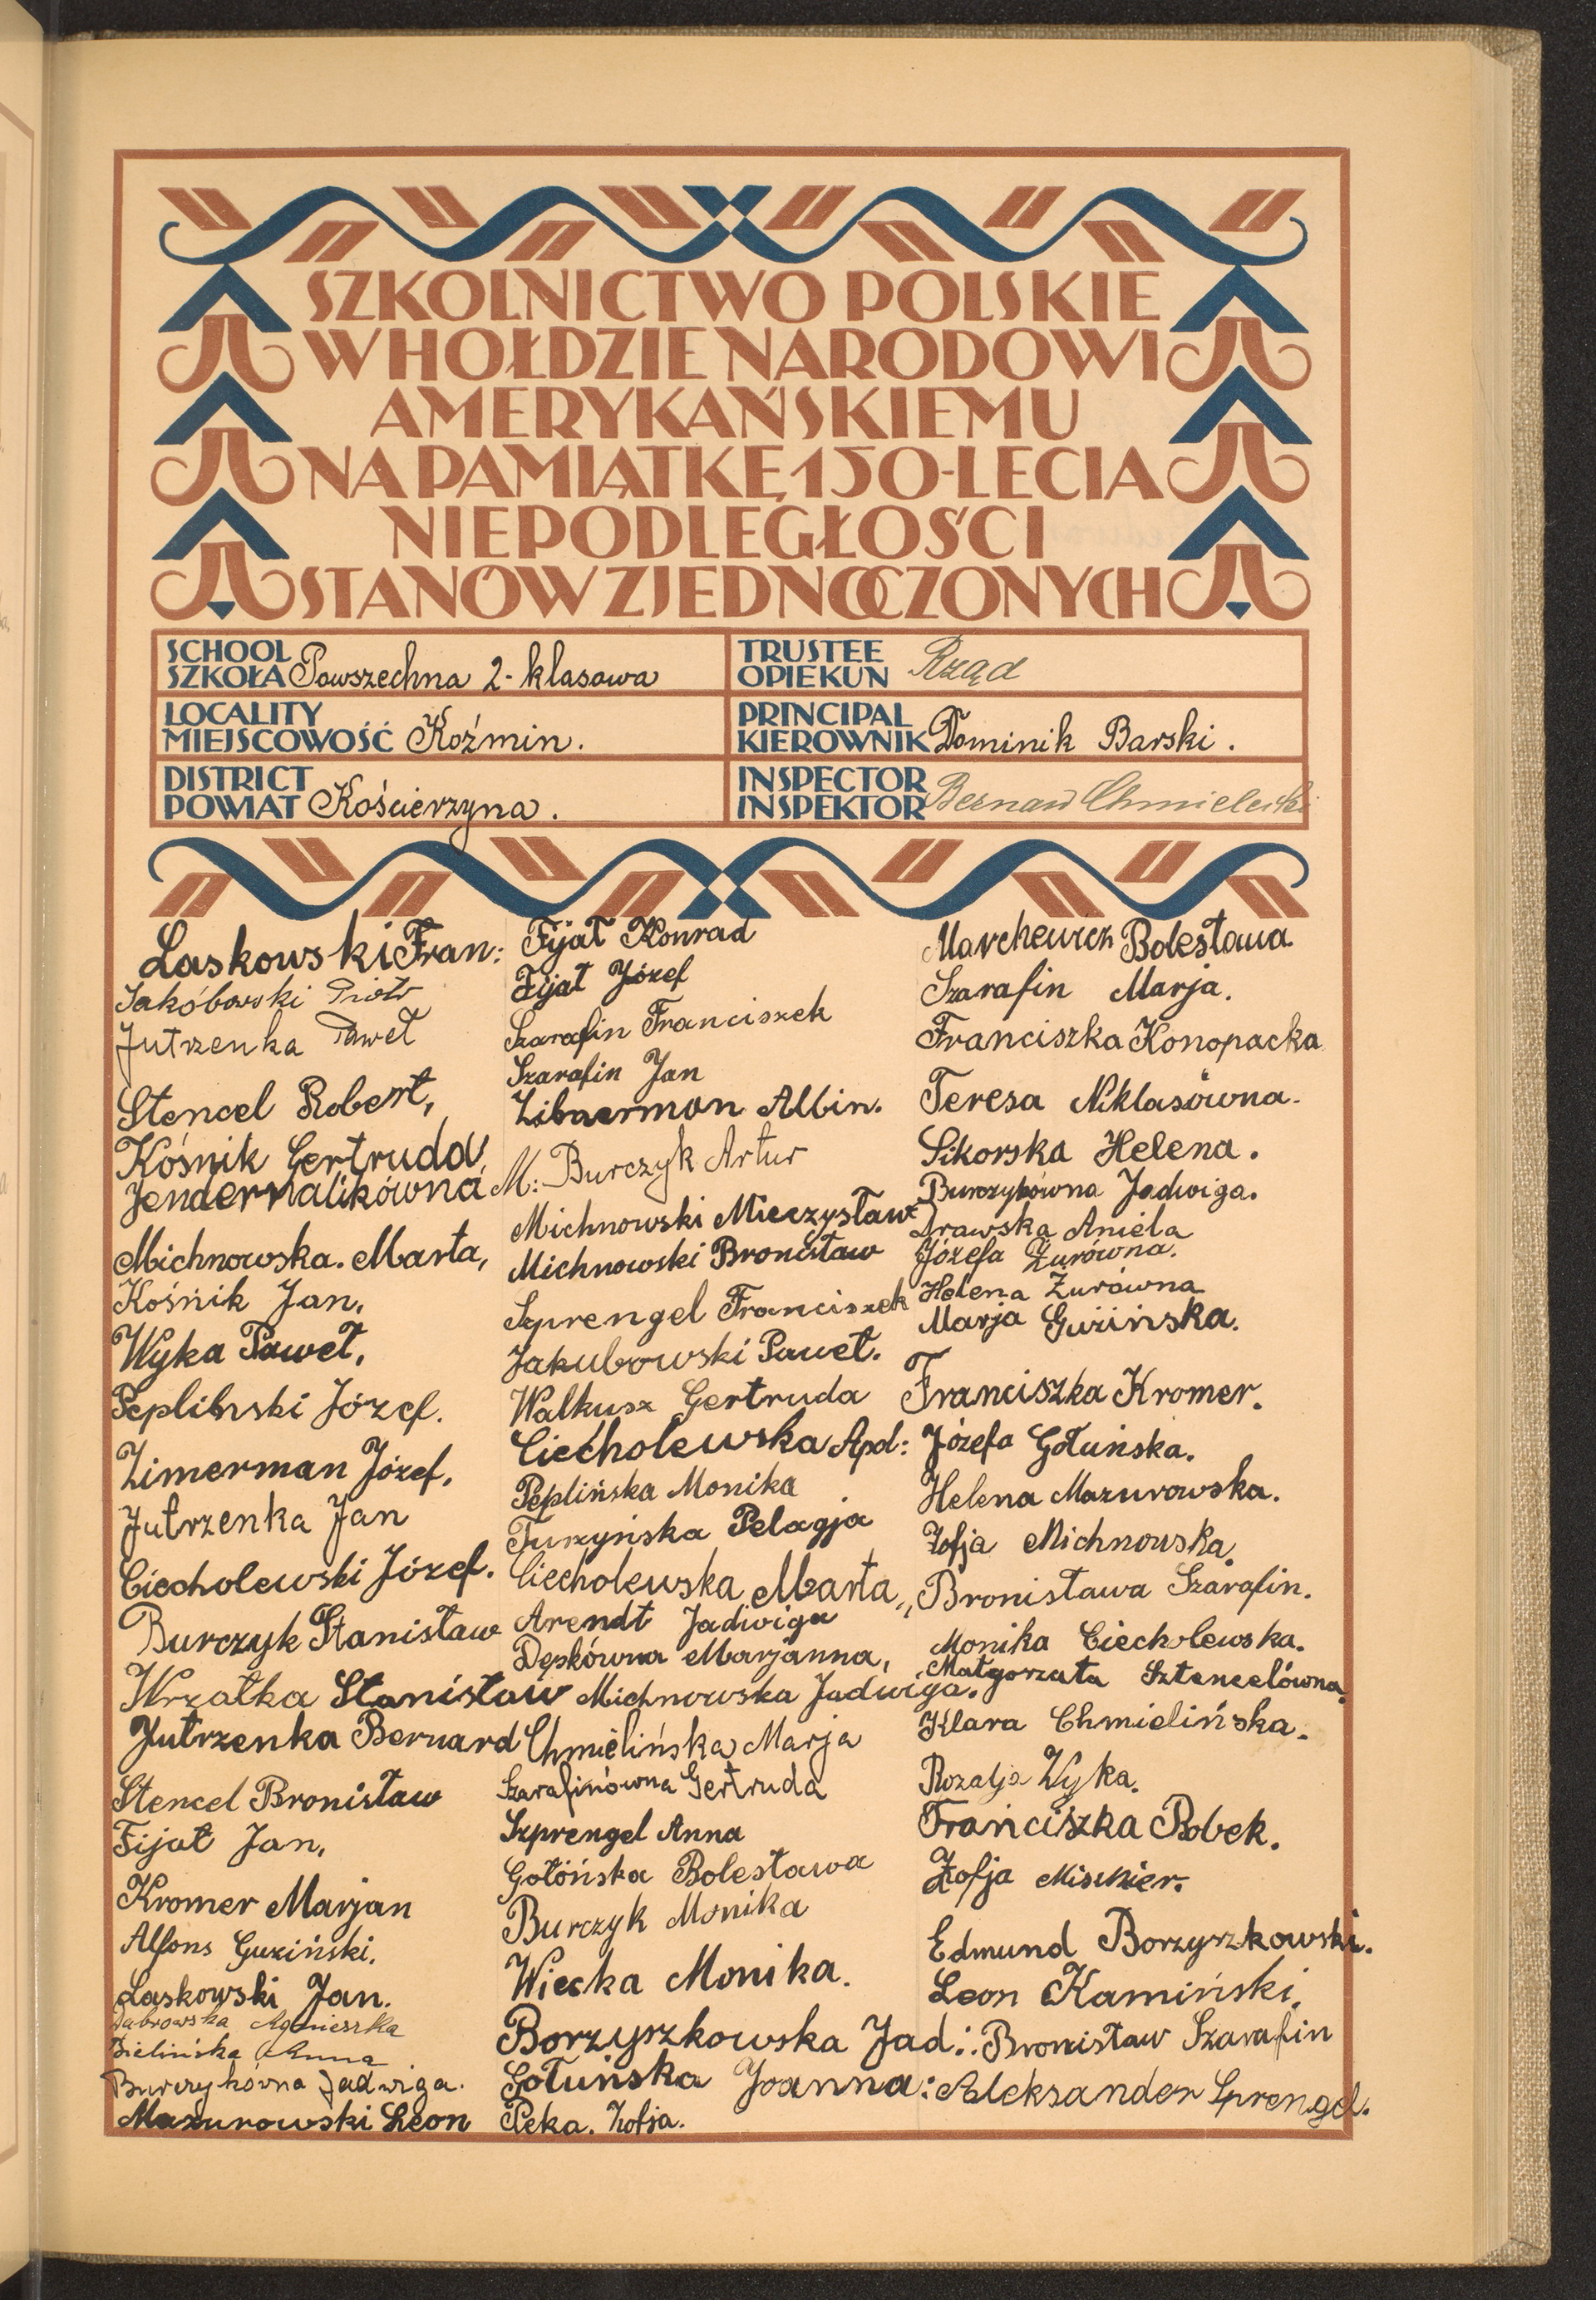 SZKOLNICTWO POLSKIE
W HOŁDZIE NARODOWI
AMERYKAŃSKIEMU
NA PAMIĄTKĘ 150-LECIA
NIEPODLEGŁOŚCI
STANÓW ZJEDNOCZONYCH
SCHOOL
SZKOŁA Powszechna 2-klasowa
TRUSTEE
OPIEKUN Rząd
LOCALITY
MIEJSCOWOŚĆ Koźmin.
PRINCIPAL
KIEROWNIK Dominik Barski.
DISTRICT
POWIAT Kościerzyna.
INSPECTOR
INSPEKTOR Bernard Chmielecki
Laskowski Fran:
Jakóbowski Piotr
Jutrzenka Paweł
Stencel Robert,
Kośnik Gertruda
Jendernalikówna
Michnowska. Marta,
Kośnik Jan,
Wyka Paweł,
Peplinski Józef.
Zimerman Józef,
Jutrzenka Jan
Ciecholewski Józef.
Burczyk Stanisław
Wrzatka Stanisław
Jutrzenka Bernard
Stencel Bronisław
Fijat Jan,
Kromer Marjan
Alfons Guziński.
Laskowski Jan.
Dabrowska Agnieszka
Bielińska Anna
Burczykówna Jadwiga.
Mazurowski Leon
Fijat Konrad
Fijat Józef
Szarafin Franciszek
Szarafin Jan
Albin.
M: Burczyk Artur
Michnowski Mieczysław
Michnowski Bronisław
Szprengel Franciszek
Jakubowski Paweł.
Walkusz Gertruda
Ciecholewska Apol:
Peplińska Monika
Turzyńska Pelagja
Ciecholewska Marta,
Arendt Jadwiga
Depkówna Marjanna,
Michnowska Jadwiga.
Chmielińska Marja
Szarafinówna Gertruda
Szprengel Anna
Gołóńska Bolesława
Burczyk Monika
Wiecka Monika.
Borzyszkowska Jad:
Gołuńska Joanna:
Peka. Zofja.
Marchewicz Bolesława
Szarafin Marja.
Franciszka Konopacka
Teresa Niklasówna.
Sikorska Helena.
Burczykówna Jadwiga.
Drawska Aniela
Józefa Żurówna.
Helena Żurówna
Marja Guzińska.
Franciszka Kromer.
Józefa Gołuńska.
Helena Mazurowska.
Zofja Michnowska.
Bronisława Szarafin.
Monika Ciecholewska.
Małgorzata Sztencelówna.
Klara Chmielińska.
Rozalja Wyka.
Franciszka Robek.
Zofja Misckier.
Edmund Borzyszkowski.
Leon Kamiński.
Bronisław Szarafin
Aleksander Sprengel.